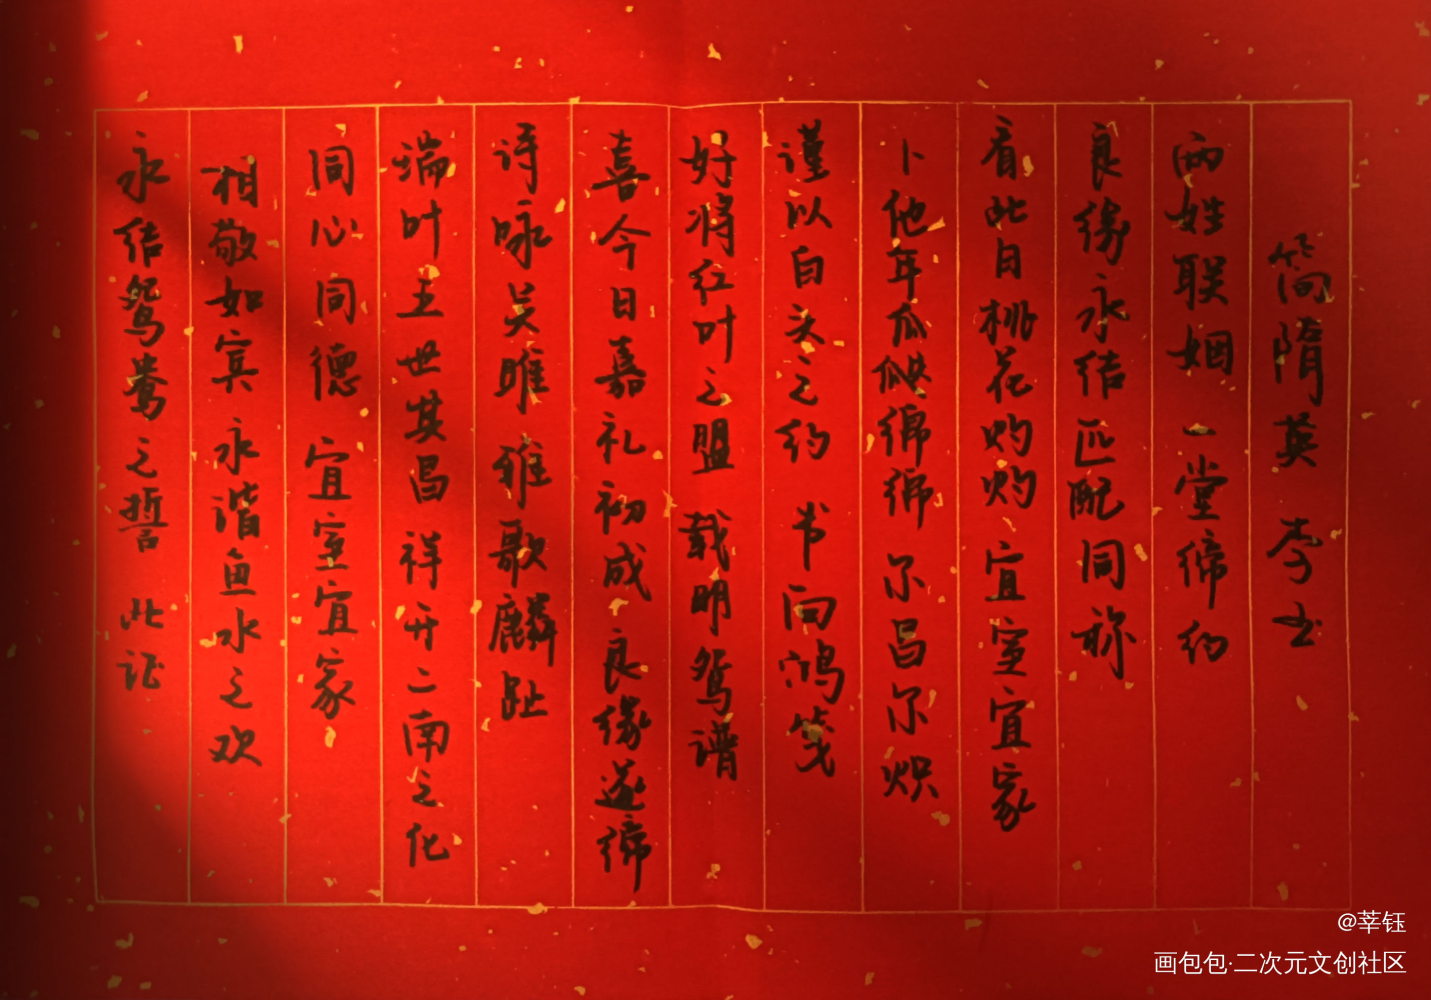 简隋英 李玉
两姓联姻 一堂缔约
良缘永结 匹配同称
看此日桃花灼灼 宜室宜家
卜他年瓜瓞绵绵 尔昌尔炽
谨以白头之约 书向鸿笺
好将红叶之盟 载明鸳谱
喜今日嘉礼初成 良缘遂缔
诗咏关雎 雅歌麟趾
瑞叶五世其昌 祥开二南之化
同心同德 宜室宜家
相敬如宾 永谐鱼水之欢
永结鸳鸯之誓 此证
@莘钰
画包包·二次元文创社区